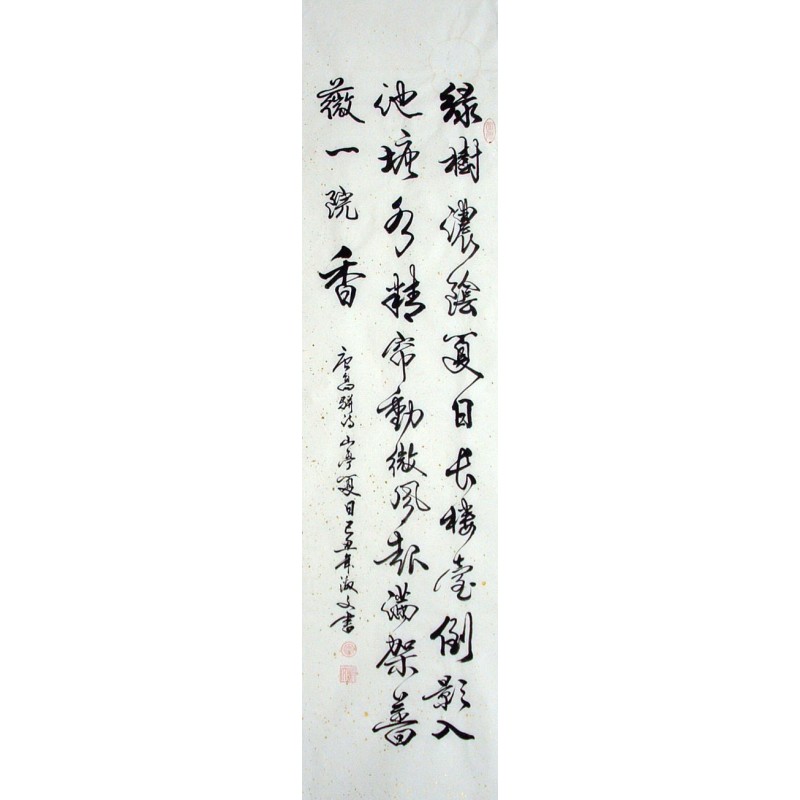 綠樹濃陰夏日长楼臺倒影入
池塘水精帘動微风起滿架薔
薇一院香
唐高駢诗山亭夏日己丑年淑文書